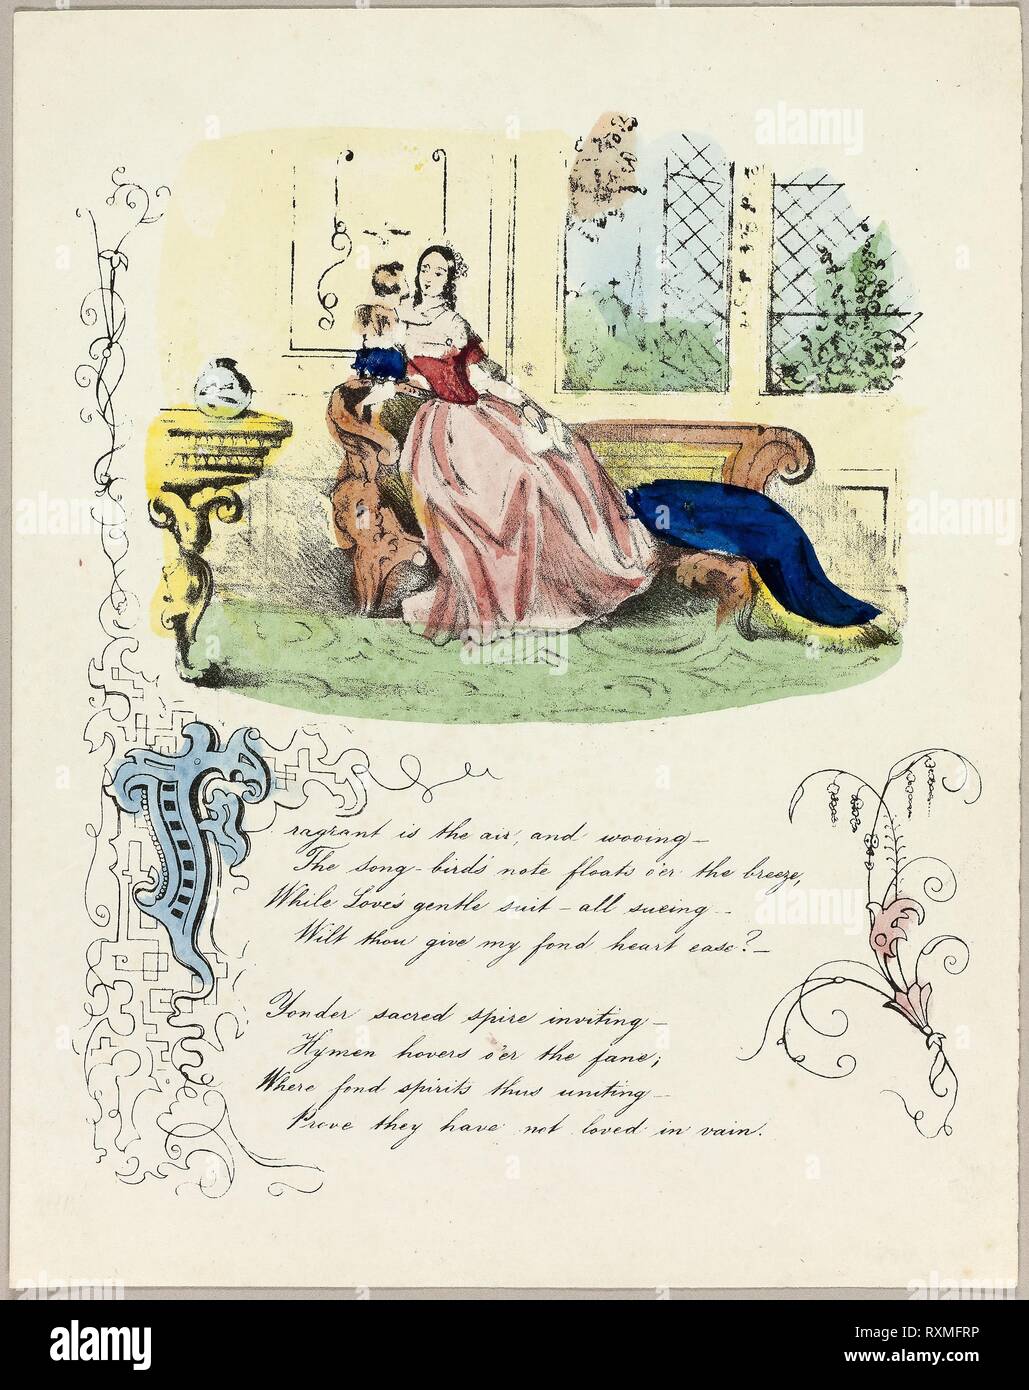 Fragrant is the air, and wooing—
The song-bird's note floats o'er the breeze,
While Love's gentle suit - all sueing -
Wilt thou give my fond heart ease? —
Yonder sacred spire inviting —
Hymen hovers o'er the fane;
Where fond spirits thus uniting —
Prove they have not loved in vain.
alamy
Image ID: RXMFRP
www.alamy.com